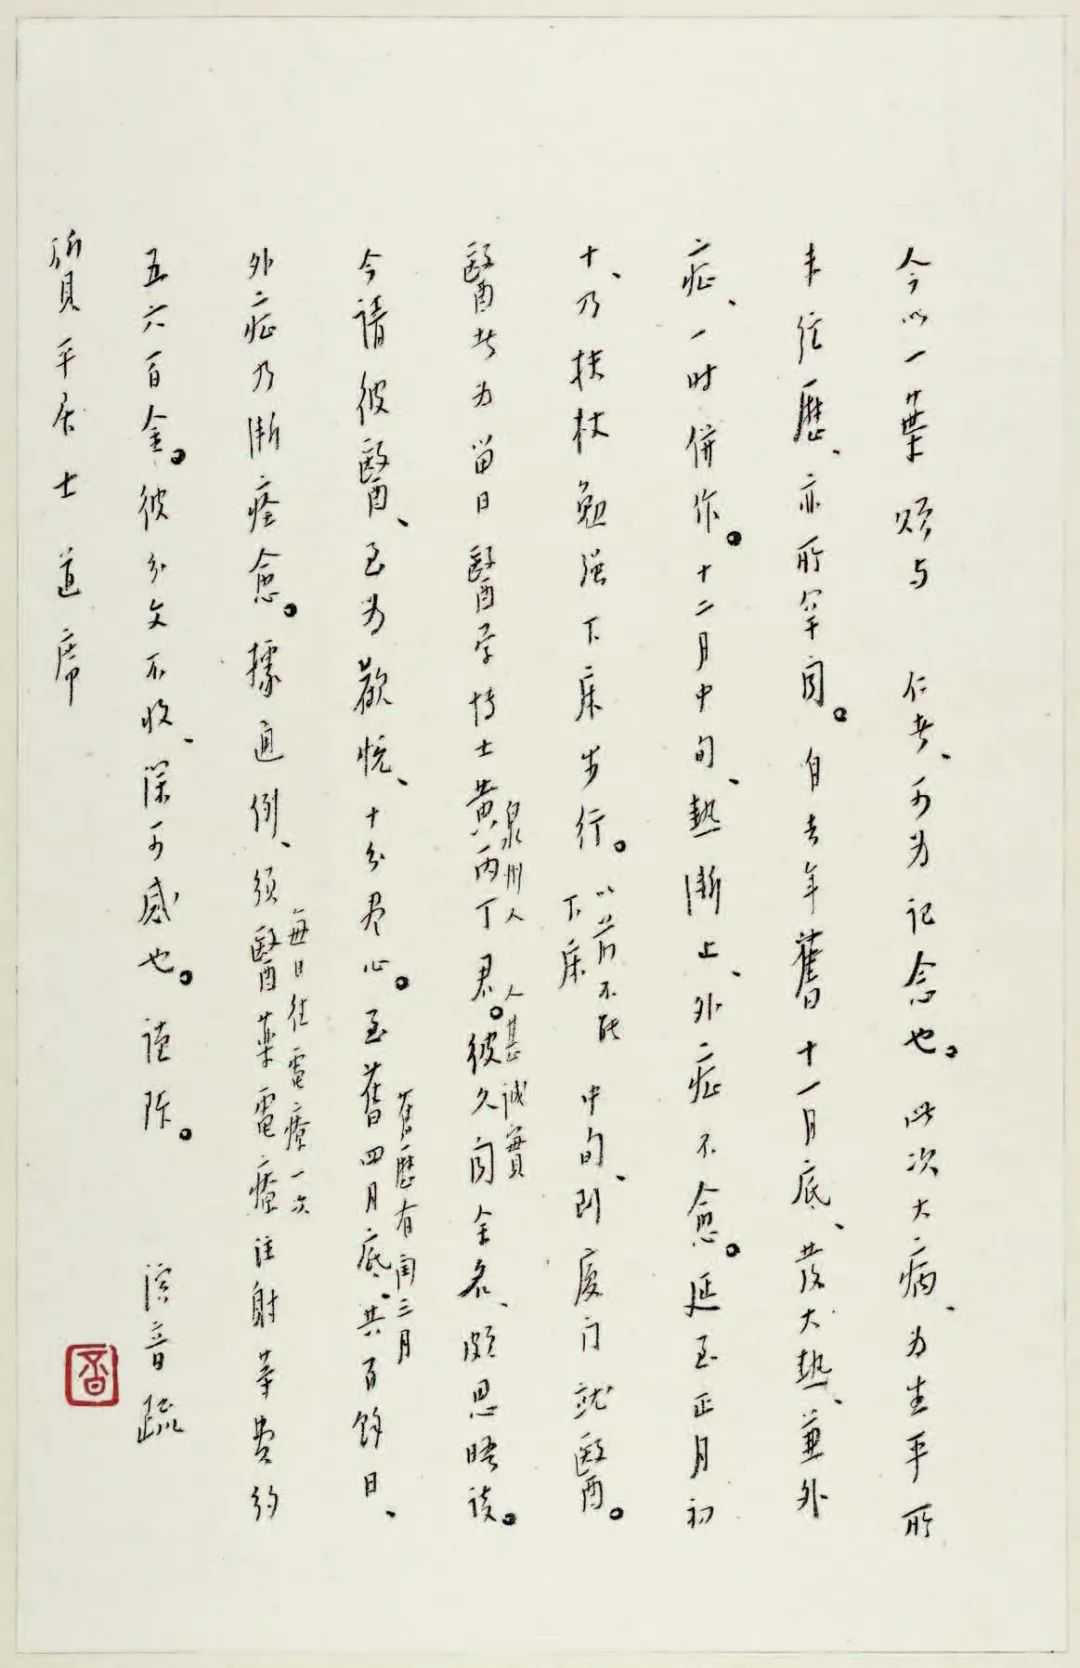 今以一葉贈与　仁者、可为記念也。此次大病、为生平所
未經歷、亦所罕闻。自去年舊十一月底、发大热、兼外
症、一时併作。十二月中旬、熱漸止、外症不愈。延至正月初
十、乃扶杖勉强下床步行。以前不能下床　中旬、到厦门就醫。
醫者为留日醫学博士黄丙丁君。泉州人　人甚诚實　彼久闻余名、頗思晤谈。
今請彼醫、至为歡悦、十分尽心。至舊四月底、舊歷有闰三月　共百餘日、
外症乃漸痊愈。據通例、须醫藥電療注射等费约　每日往電療一次
五六百金。彼分文不收、深可感也。谨陈。　演音疏
質平居士　道席